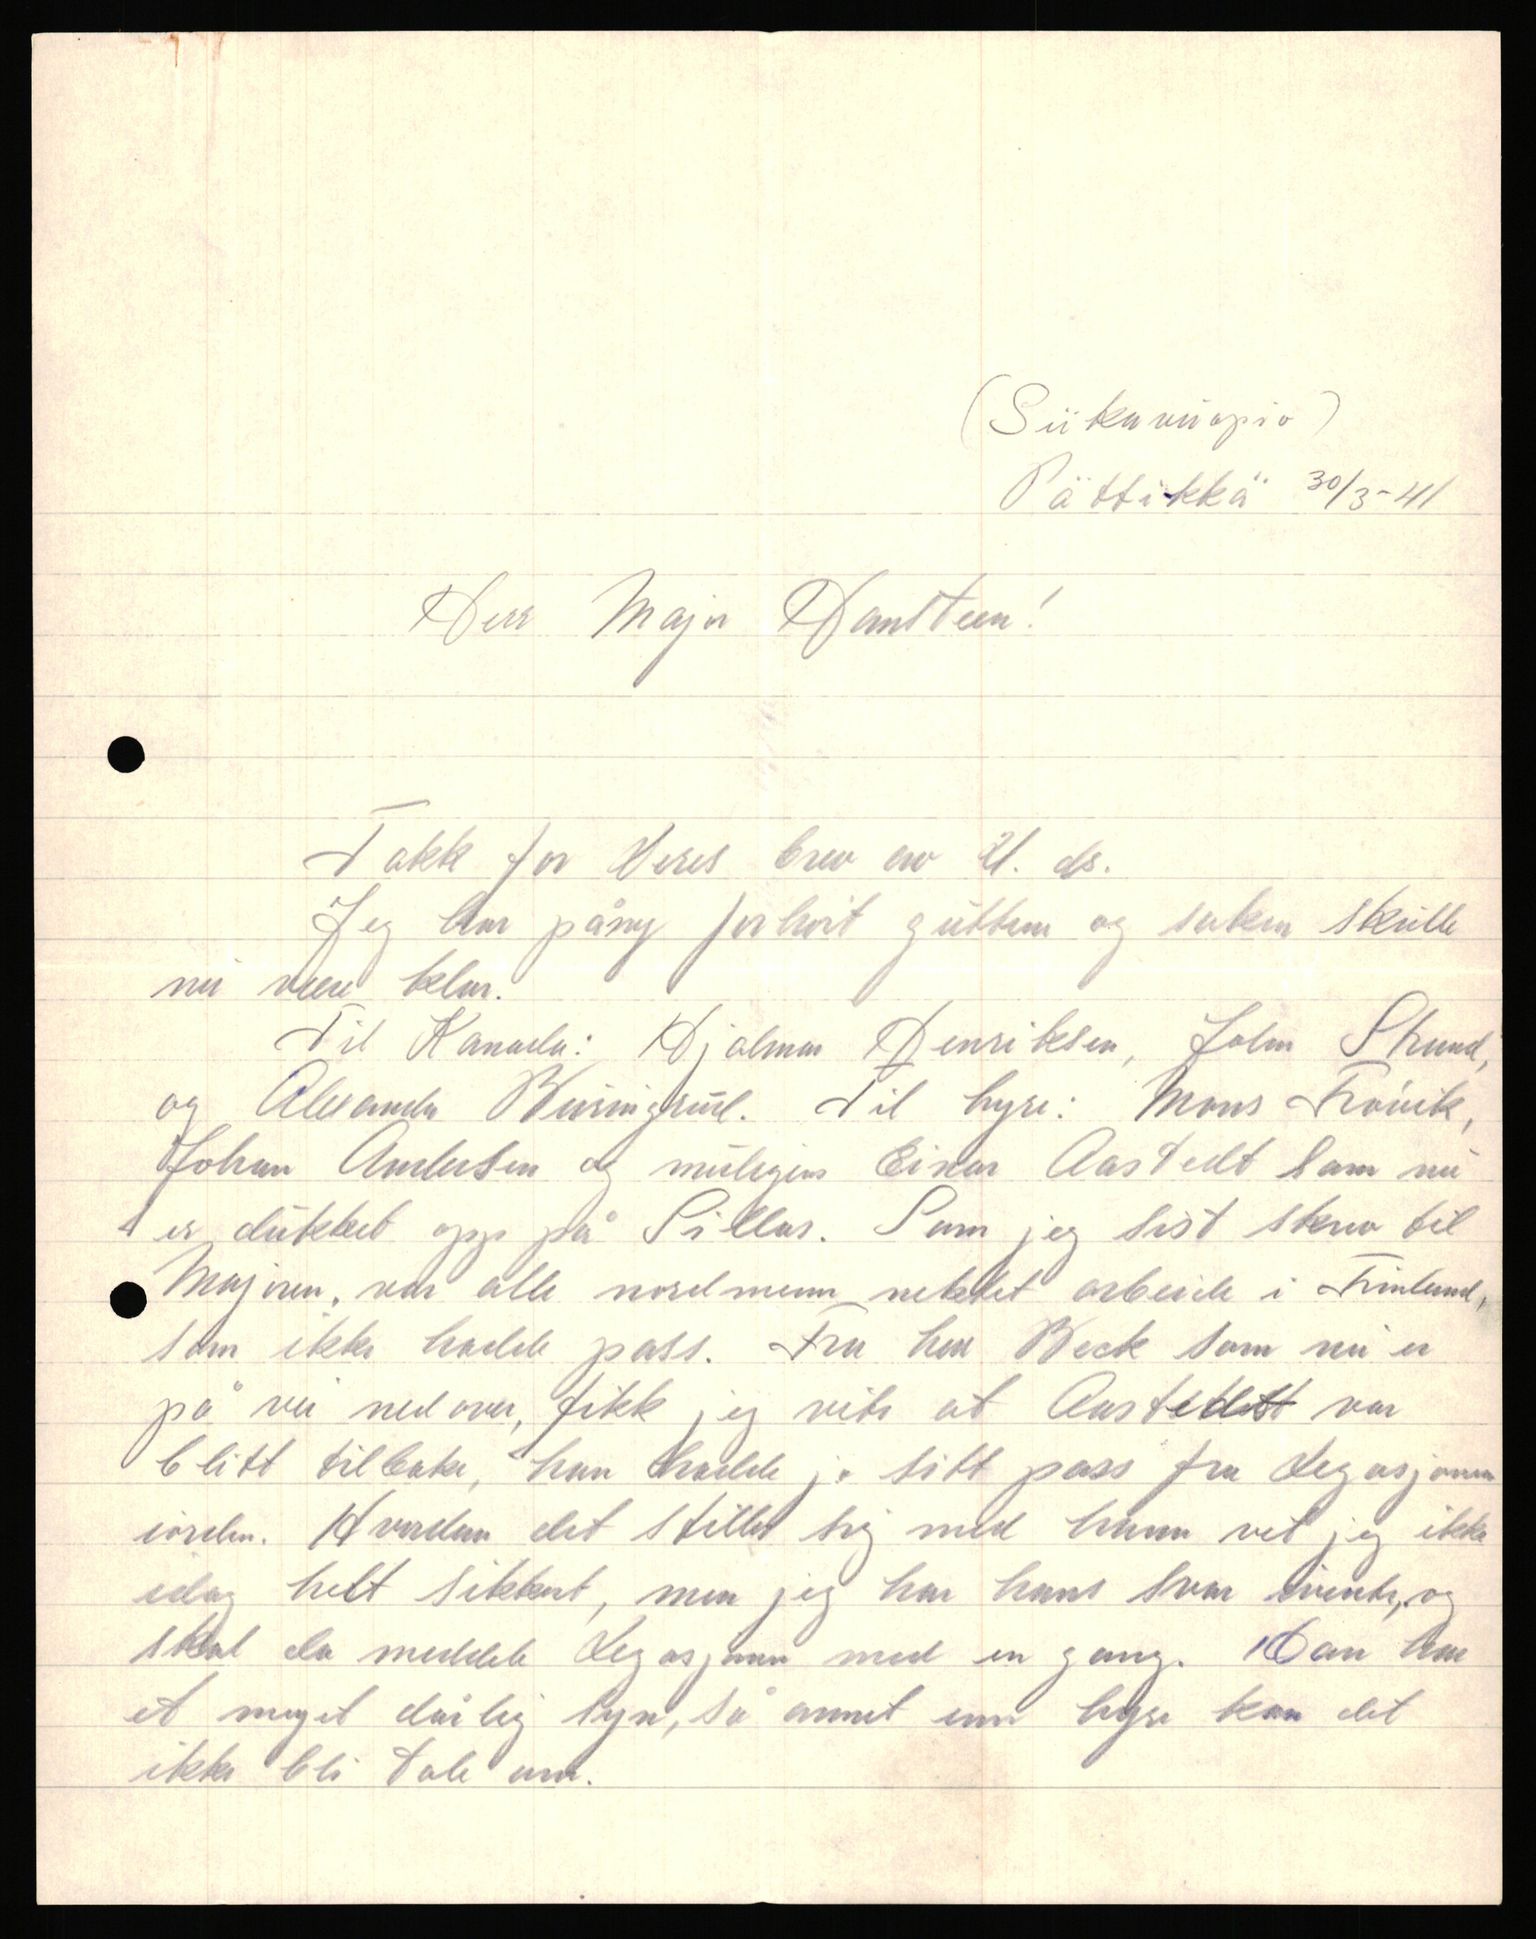 (Siikavuopio)
Pättikkä 30/3-41
Herr Major Hansteen!
Takk for Deres brev av 21. ds.
Jeg har påny forhört guttene og saken skulle
nu være klar.
Til Kanada: Hjalmar Henriksen, John Strand,
og Alexander Buringrud. Til hyre: Mons Frövik,
Johan Andersen og muligens Einar Aastedt som nu
er dukket opp på Sillas. Som jeg sist skrev til
Majoren, var alle nordmenn nektet arbeide i Finland,
som ikke hadde pass. Fra herr Beck som nu er
på vei nedover, fikk jeg vite at Aastedt var
blitt tilbake, han hadde jo sitt pass fra Legasjonen
iorden. Hvordan det stiller sig med ham vet jeg ikke
idag helt sikkert, men jeg har hans svar ivente, og
skal da meddele Legasjonen med en gang. Han har
et meget dårlig syn, så annet enn hyre kan det
ikke bli tale om.